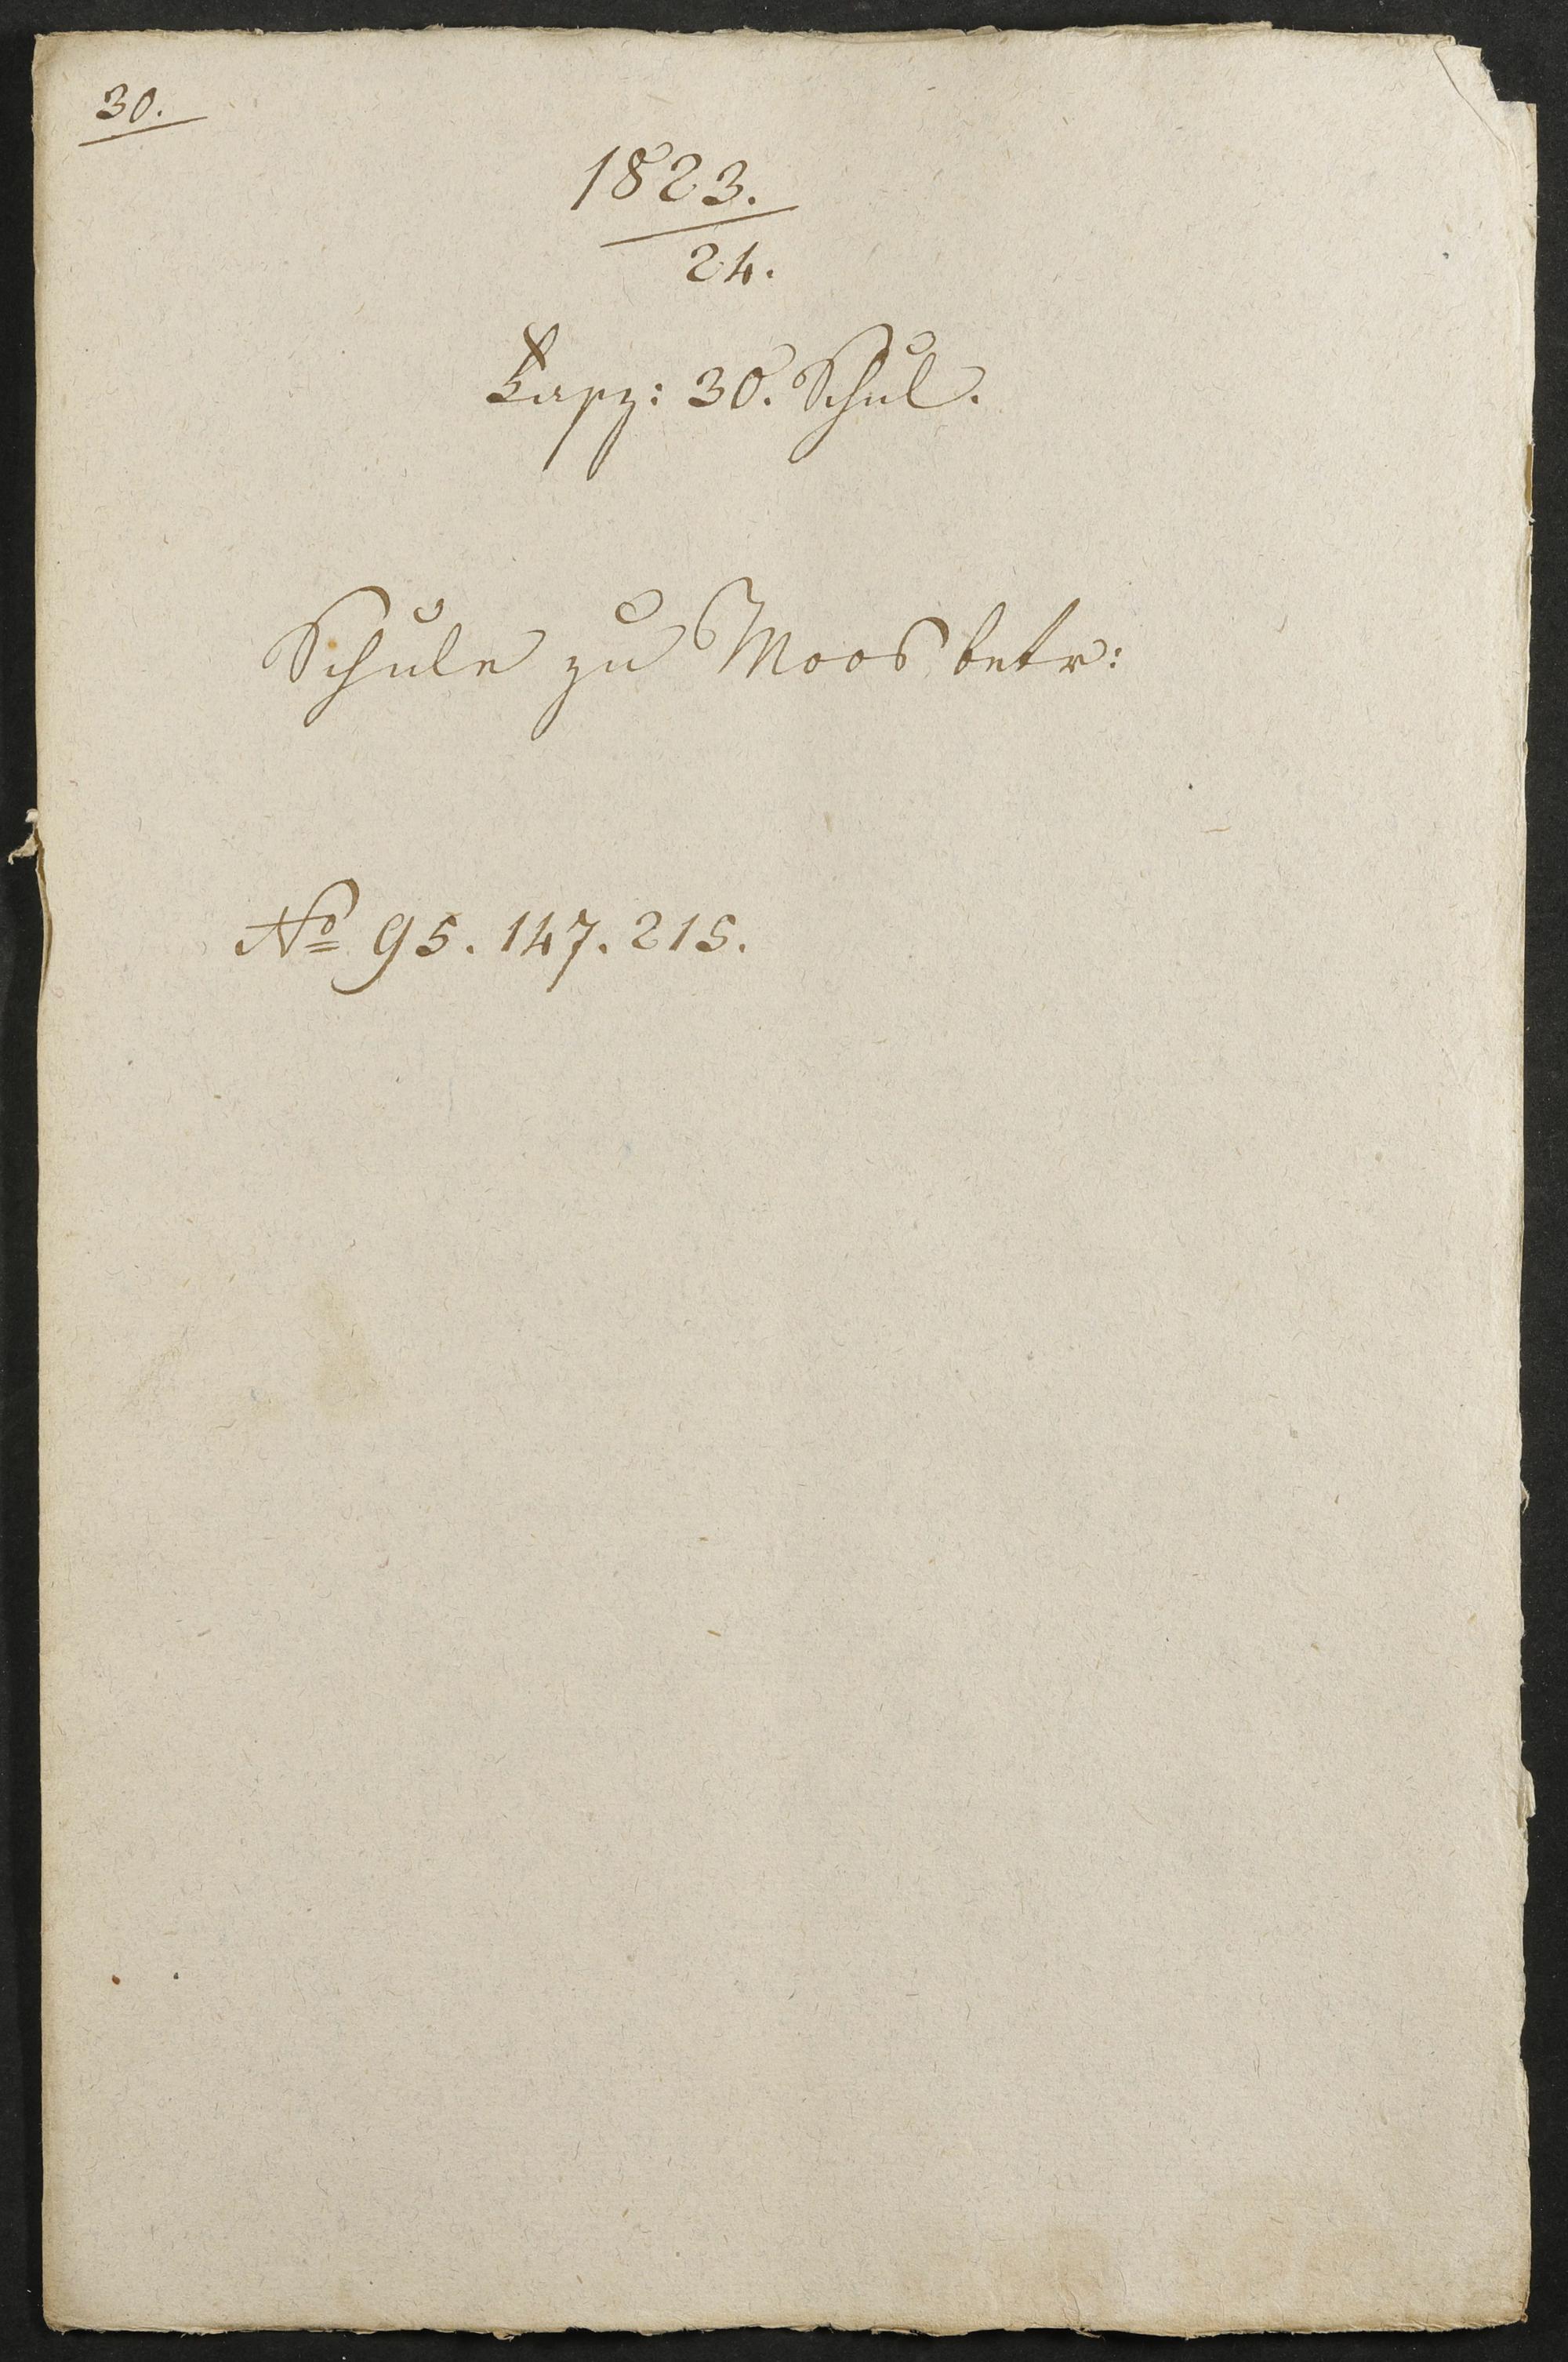 30.
1823.
24.
Fasz: 30. Schul.
Schule zu Moos betr:
No 95. 147. 215.